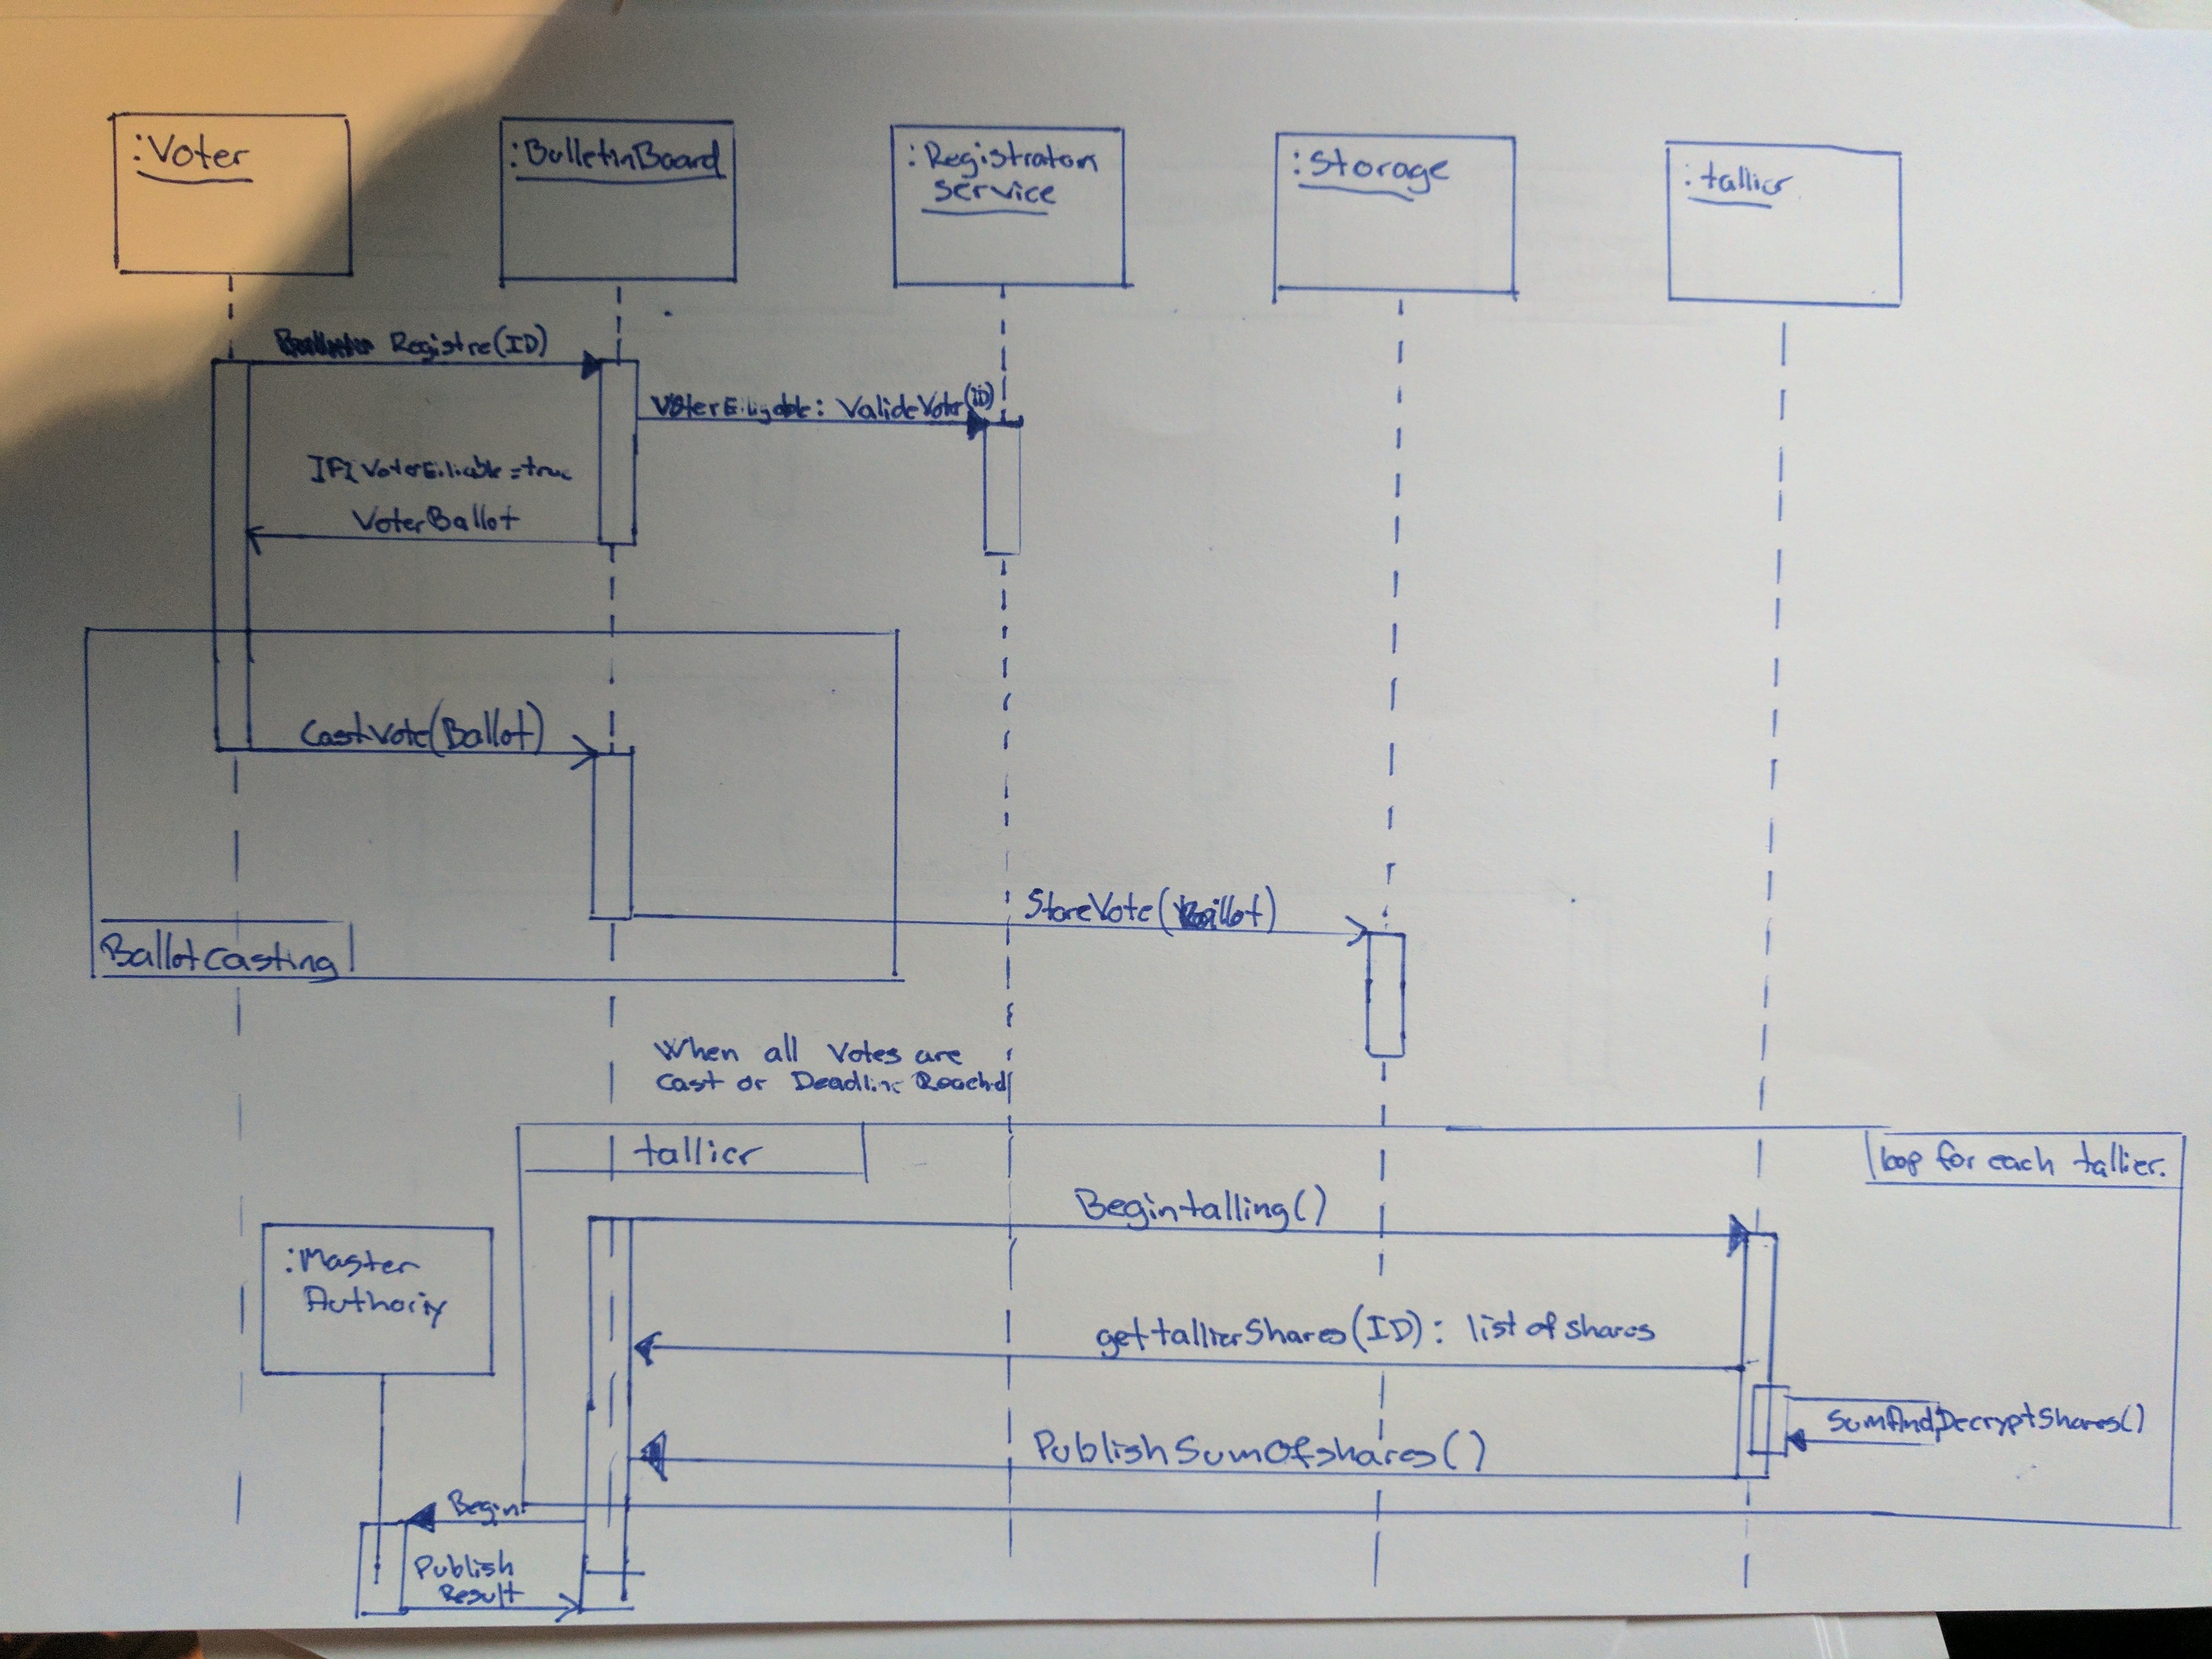 :Voter
:BulletinBoard
:Registraton
service
:Storage
:tallier
Registre(ID)
ValideVoter(iD)
=true
VoterBallot
CastVote(Ballot)
StoreVote(Ballot)
Ballotcasting
When all Votes are
Cast or Deadline Reachd
tallier
loop for each tallier.
Begintalling()
:Master
Authoriy
gettallierShares(ID): list of shares
SumAndDecryptShares()
PublishSumOfshares()
Begin
Publish
Result